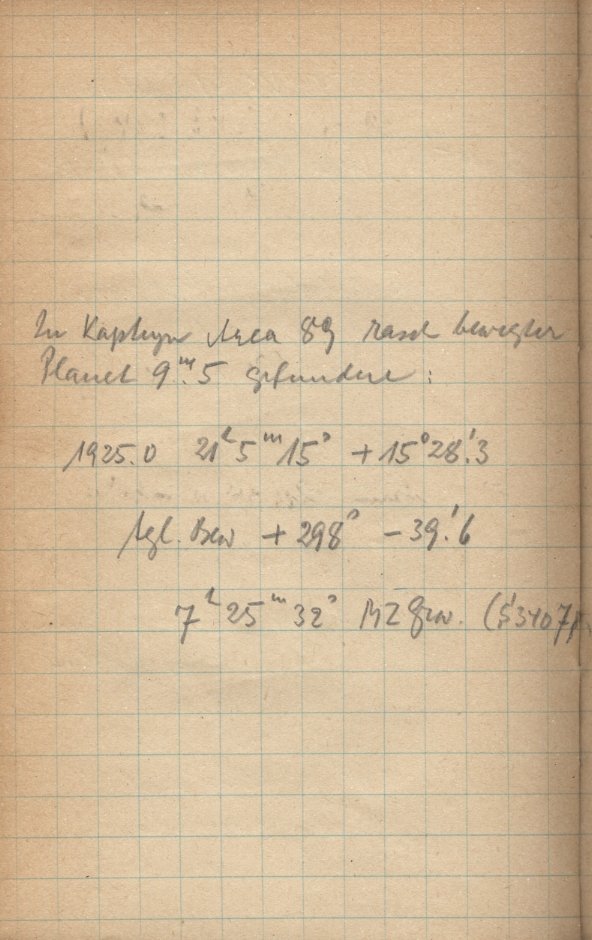 In Kapteyn Area 89 rasch bewegter
Planet 9ᵐ.5 gefunden:
1925.0 21ʰ5ᵐ15ˢ +15°28'.3
tgl. Bew +298ˢ -39'.6
7ʰ25ᵐ32ˢ MZ Grw.